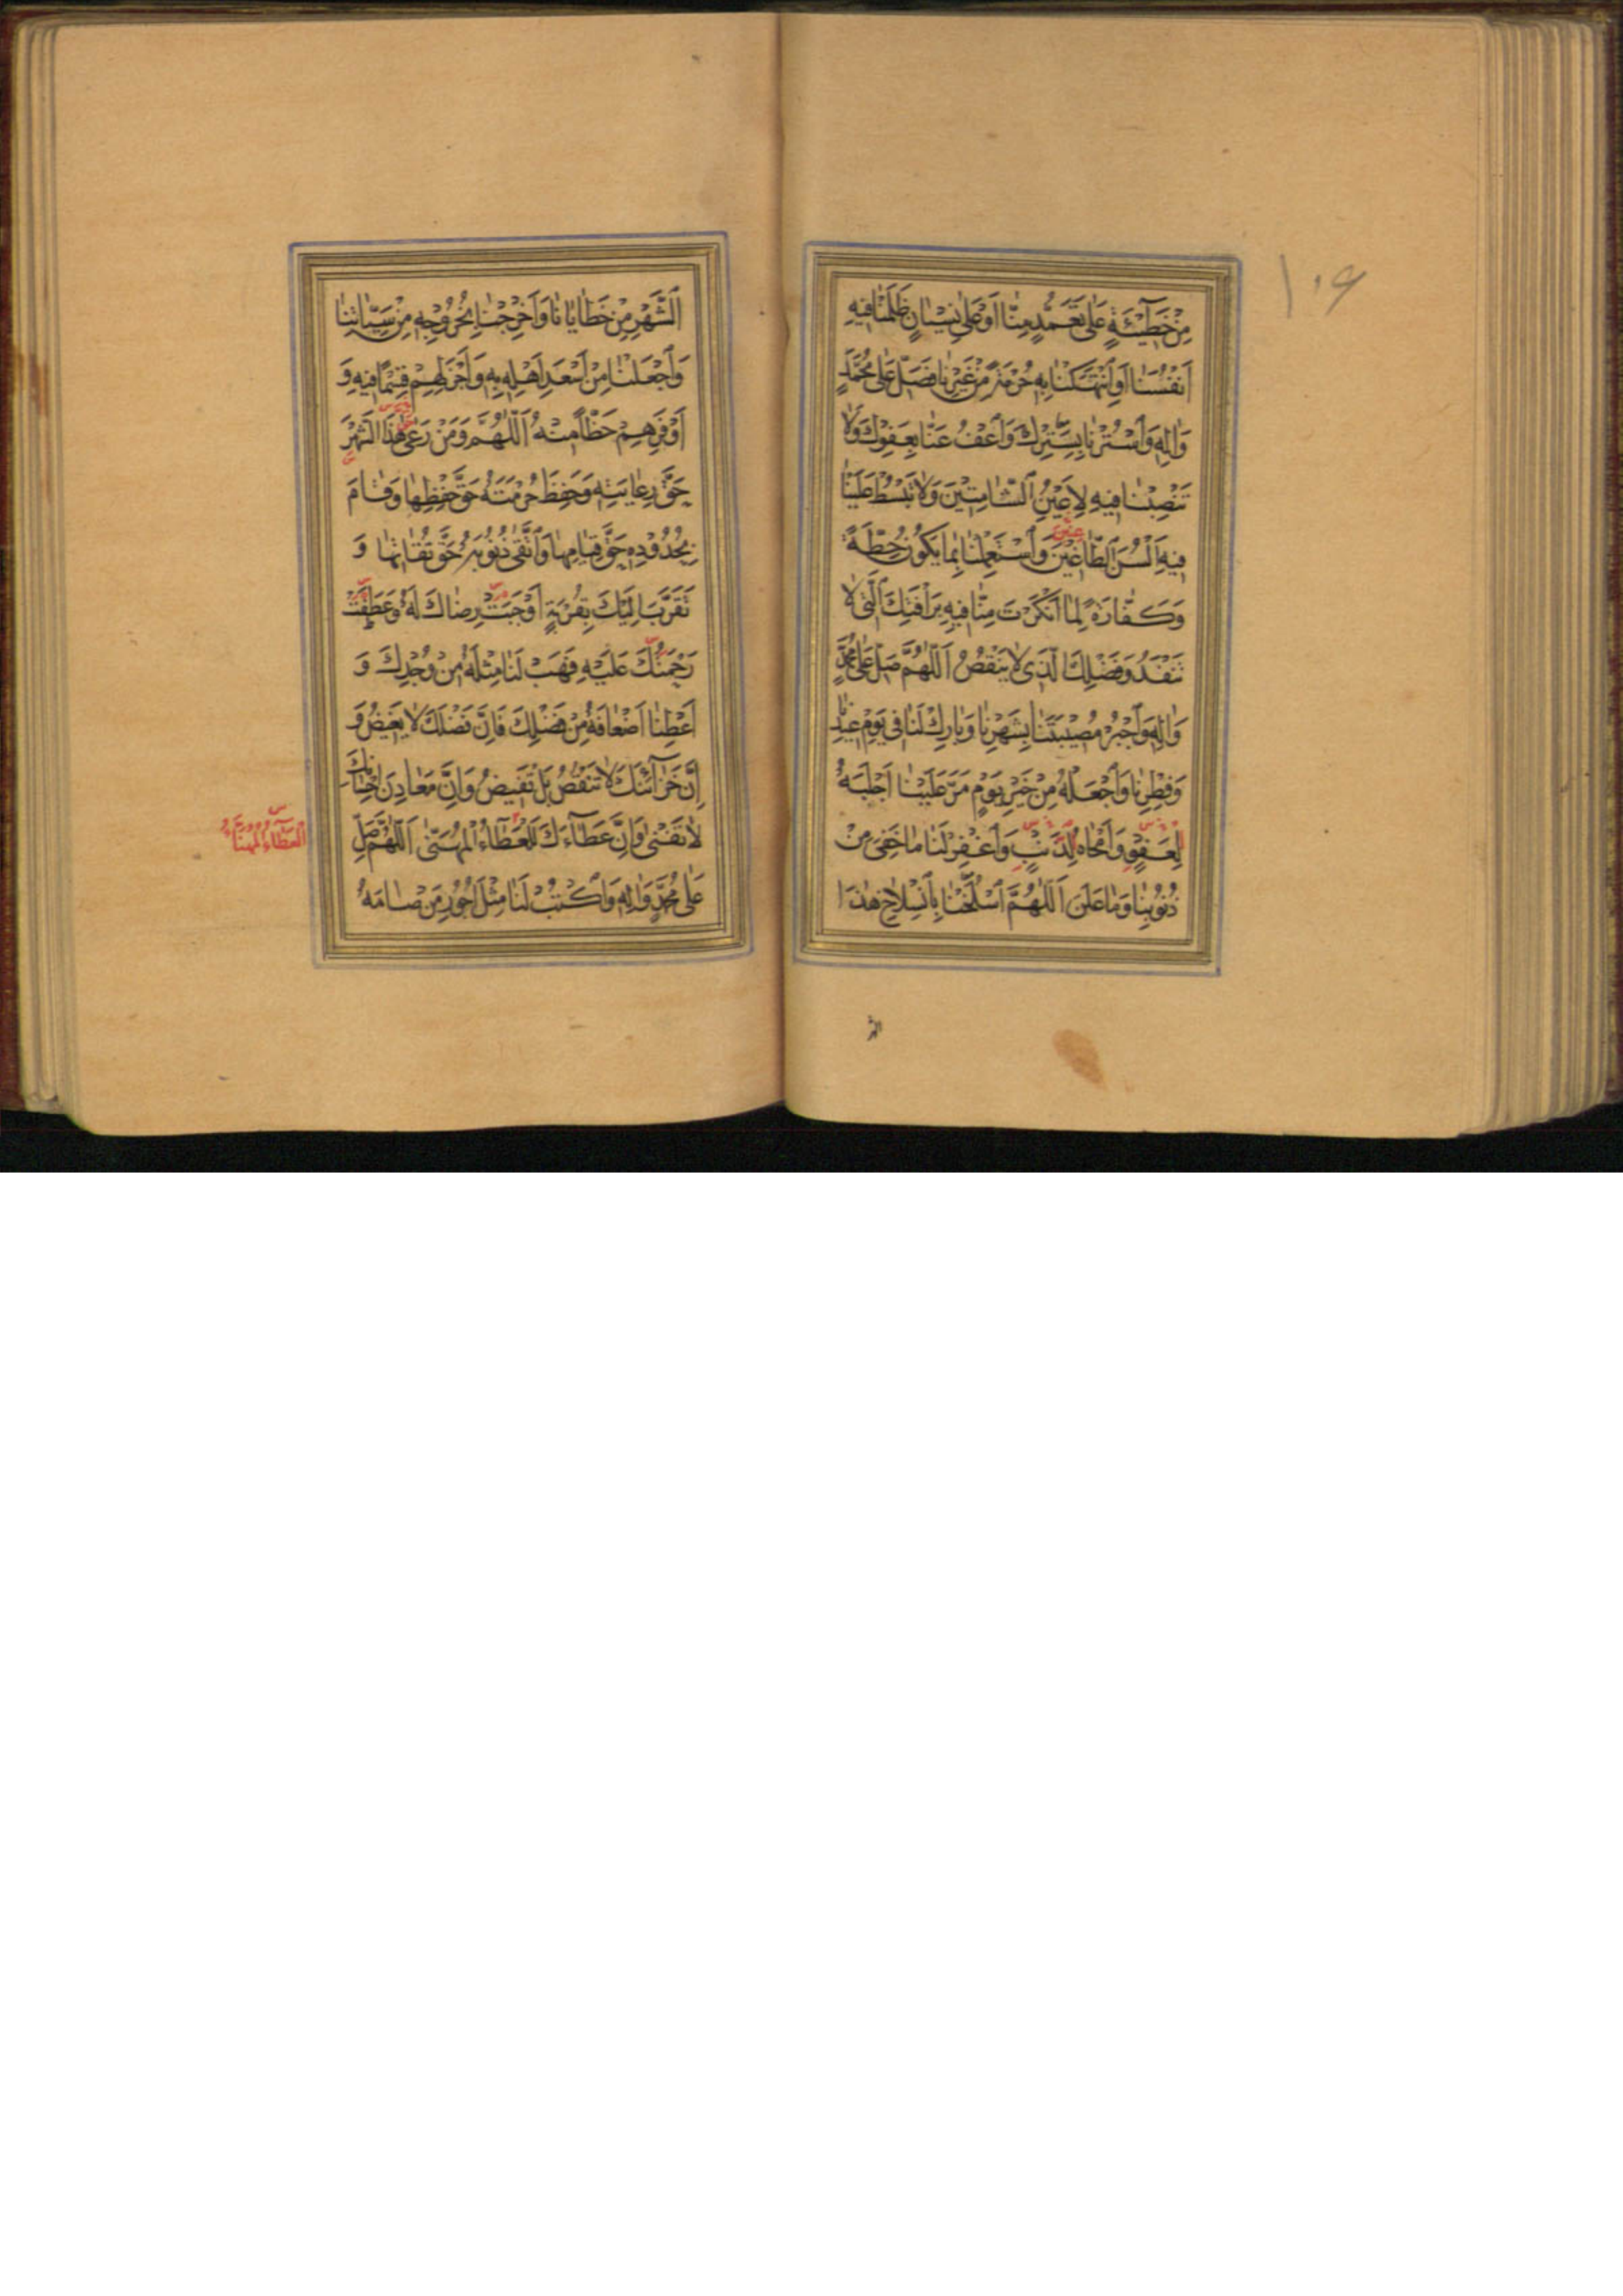 ١٠٦
مِنْ خَطٖيۤئَةٍ عَلٰى تَعَمُّدٍ مِنّٰا اَوْ عَلٰى نِسْيٰانٍ ظَلَمْنٰا فٖيهِ
اَنْفُسَنٰا اَوِ انْتَهَكْنٰا بِهٖ حُرْمَةً مِنْ غَيْرِنٰا فَصَلِّ عَلٰى مُحَمَّدٍ
وَاٰلِهٖ وَاسْتُرْنٰا بِسِتْرِكَ وَاعْفُ عَنّٰا بِعَفْوِكَ وَلاٰ
تَنْصِبْنٰا فٖيهِ لِاَعْيُنِ الشّٰامِتٖينَ وَلاٰ تَبْسُطْ عَلَيْنٰا
فٖيهِ اَلْسُنَ الطّٰاغٖينَ وَاسْتَعْمِلْنٰا بِمٰا يَكُونُ حِطَّةً
وَكَفّٰارَةً لِمٰا اَنْكَرْتَ مِنّٰا فٖيهِ بِرَاْفَتِكَ الَّتٖى لاٰ
تَنْفَدُ وَفَضْلِكَ الَّذٖى لاٰ يَنْقُصُ اَللّٰهُمَّ صَلِّ عَلٰى مُحَمَّدٍ
وَاٰلِهٖ وَاجْبُرْ مُصٖيبَتَنٰا بِشَهْرِنٰا وَبٰارِكْ لَنٰا فٖى يَوْمِ عٖيدِنٰا
وَفِطْرِنٰا وَاجْعَلْهُ مِنْ خَيْرِ يَوْمٍ مَرَّ عَلَيْنٰا اَجْلَبَهُ
لِعَفْوٍ وَاَمْحٰاهُ لِذَنْبٍ وَاغْفِرْ لَنٰا مٰا خَفِىَ مِنْ
ذُنُوبِنٰا وَمٰا عَلَنَ اَللّٰهُمَّ اسْلَخْنٰا بِانْسِلاٰخِ هٰذَا
اَلشَّهْرِ مِنْ خَطٰايٰانٰا وَاَخْرِجْنٰا بِخُرُوجِهٖ مِنْ سَيِّئٰاتِنٰا
وَاجْعَلْنٰا مِنْ اَسْعَدِ اَهْلِهٖ بِهٖ وَاَجْزَلِهِمْ قِسْمًا فٖيهِ وَ
اَوْفَرِهِمْ حَظًّا مِنْهُ اَللّٰهُمَّ وَمَنْ رَعٰى هٰذَا الشَّهْرَ
حَقَّ رِعٰايَتِهٖ وَحَفِظَ حُرْمَتَهُ حَقَّ حِفْظِهٰا وَقٰامَ
بِحُدُودِهٖ حَقَّ قِيٰامِهٰا وَاتَّقٰى ذُنُوبَهُ حَقَّ تُقٰاتِهٰا وَ
تَقَرَّبَ اِلَيْكَ بِقُرْبَةٍ اَوْجَبَتْ رِضٰاكَ لَهُ وَعَطَفَتْ
رَحْمَتَكَ عَلَيْهِ فَهَبْ لَنٰا مِثْلَهُ مِنْ وُجْدِكَ وَ
اَعْطِنٰا اَضْعٰافَهُ مِنْ فَضْلِكَ فَاِنَّ فَضْلَكَ لاٰ يَغٖيضُ وَ
اِنَّ خَزٰآئِنَكَ لاٰ تَنْقُصُ بَلْ تَفٖيضُ وَاِنَّ مَعٰادِنَ اِحْسٰانِكَ
لاٰ تَفْنٰى وَاِنَّ عَطٰآءَكَ لَلْعَطٰآءُ الْمُهَنّٰى اَللّٰهُمَّ صَلِّ
الْعَطٰآءُ الْمُهَنَّاُ
عَلٰى مُحَمَّدٍ وَاٰلِهٖ وَاكْتُبْ لَنٰا مِثْلَ اُجُورِ مَنْ صٰامَهُ